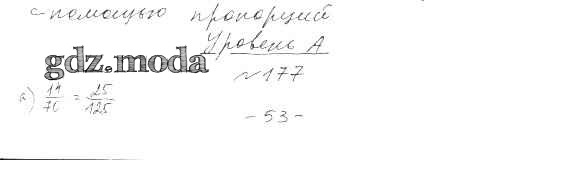 с помощью пропорций
Уровень А
gdz.moda
№177
а) 14/70 = 25/125
- 53 -